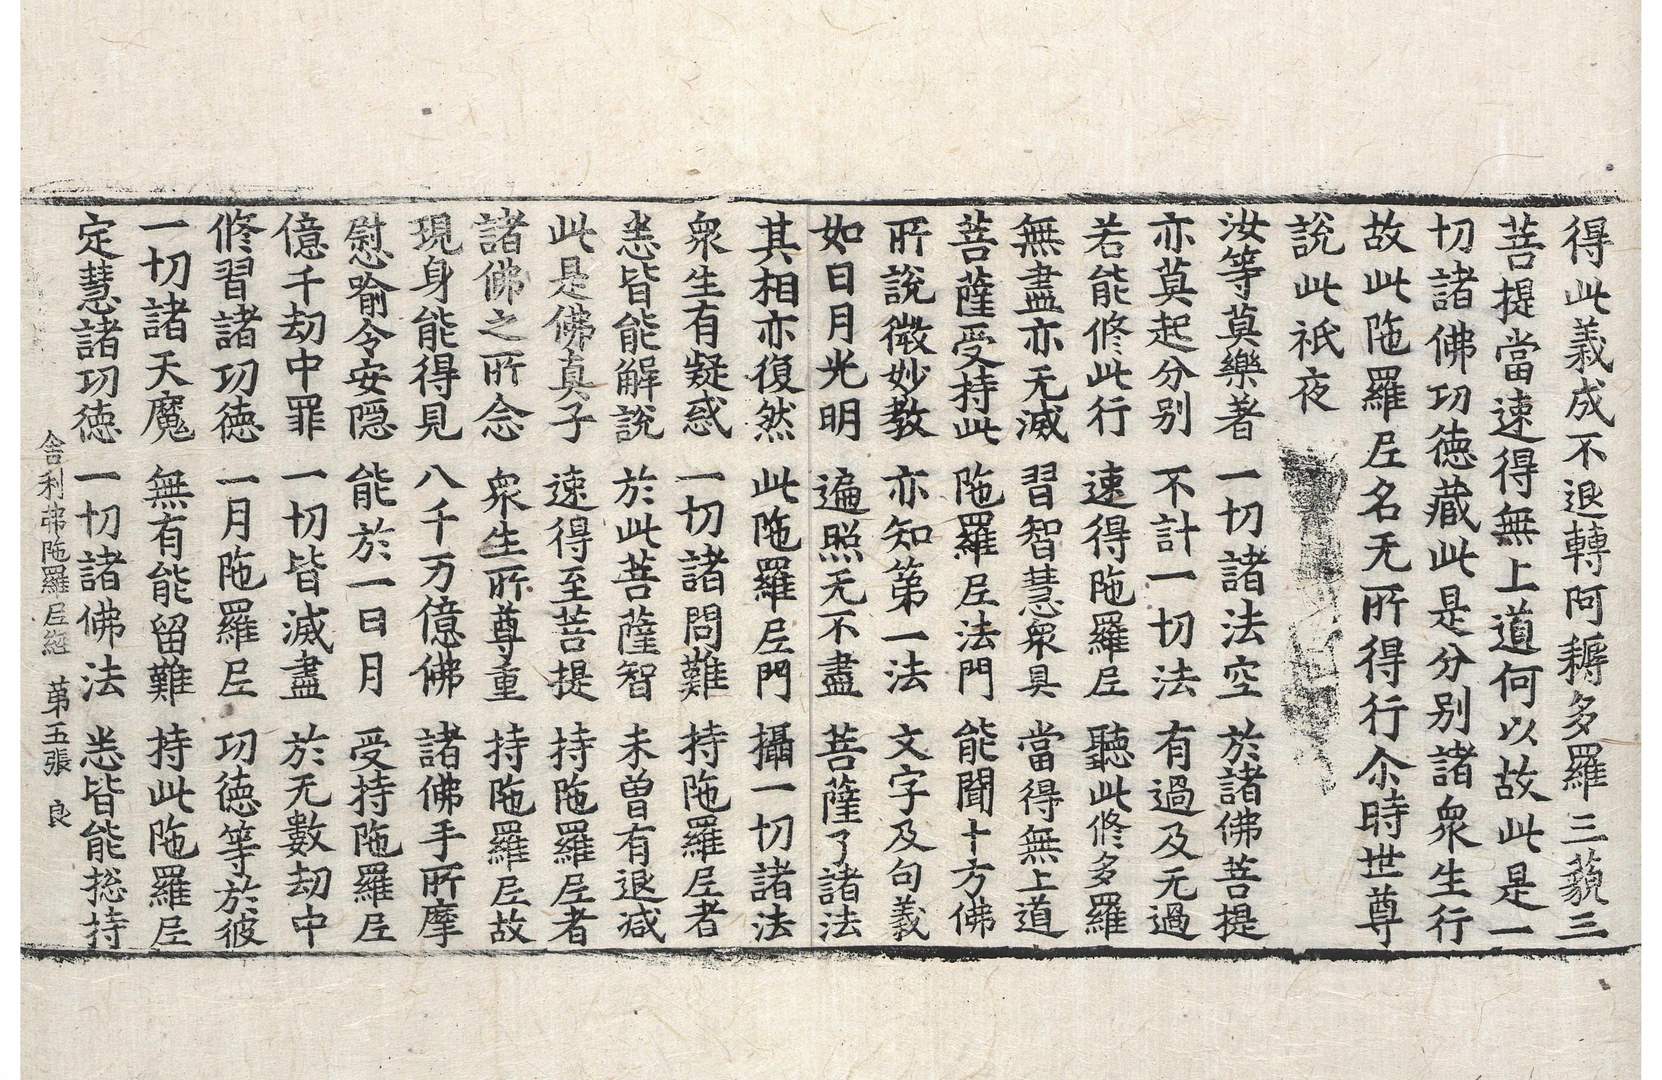 得此義成不退轉阿耨多羅三藐三
菩提當速得無上道何以故此是一
切諸佛功德藏此是分別諸衆生行
故此陁羅尼名无所得行尒時世尊
說此祇夜
汝等莫樂著 一切諸法空 於諸佛菩提
亦莫起分別 不計一切法 有過及无過
若能修此行 速得陁羅尼 聽此修多羅
無盡亦无減 習智慧衆具 當得無上道
菩薩受持此 陁羅尼法門 能聞十方佛
所說微妙教 亦知第一法 文字及句義
如日月光明 遍照无不盡 菩薩了諸法
其相亦復然 此陁羅尼門 攝一切諸法
衆生有疑惑 一切諸問難 持陁羅尼者
悉皆能解說 於此菩薩智 未曾有退减
此是佛真子 速得至菩提 持陁羅尼者
諸佛之所念 衆生所尊重 持陁羅尼故
現身能得見 八千万億佛 諸佛手所摩
慰喻令安隱 能於一日月 受持陁羅尼
億千劫中罪 一切皆滅盡 於无數劫中
修習諸功德 一月陁羅尼 功德等於彼
一切諸天魔 無有能留難 持此陁羅尼
定慧諸功德 一切諸佛法 悉皆能揔持
舍利弗陁羅尼經 第五張 良